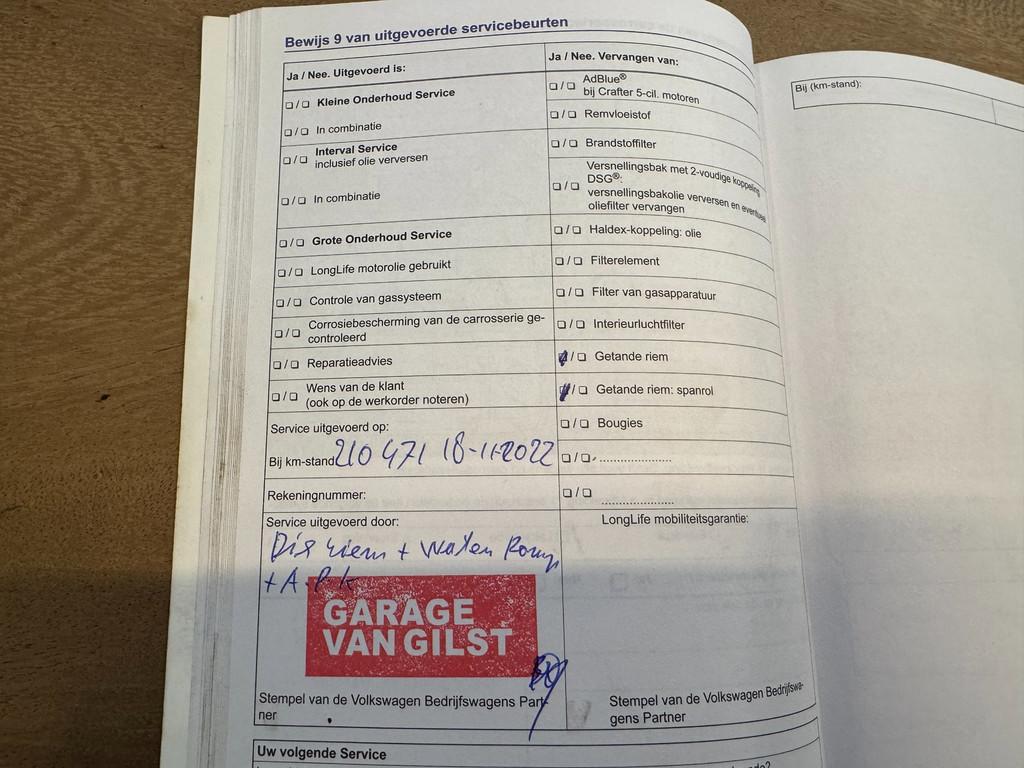 Bewijs 9 van uitgevoerde servicebeurten
Ja / Nee. Uitgevoerd is:
❏ / ❏ Kleine Onderhoud Service
❏ / ❏ In combinatie
❏ / ❏ Interval Service
inclusief olie verversen
❏ / ❏ In combinatie
❏ / ❏ Grote Onderhoud Service
❏ / ❏ LongLife motorolie gebruikt
❏ / ❏ Controle van gassysteem
❏ / ❏ Corrosiebescherming van de carrosserie ge-
controleerd
❏ / ❏ Reparatieadvies
❏ / ❏ Wens van de klant
(ook op de werkorder noteren)
Service uitgevoerd op:
Bij km-stand 210 471 18-11-2022
Rekeningnummer:
Service uitgevoerd door:
Dis riem + Water Pomp
+ A.P.k
GARAGE
VAN GILST
Stempel van de Volkswagen Bedrijfswagens Part-
ner
Ja / Nee. Vervangen van:
❏ / ❏ AdBlue®
bij Crafter 5-cil. motoren
❏ / ❏ Remvloeistof
❏ / ❏ Brandstoffilter
❏ / ❏ Versnellingsbak met 2-voudige koppeling
DSG®:
versnellingsbakolie verversen en eventueel
oliefilter vervangen
❏ / ❏ Haldex-koppeling: olie
❏ / ❏ Filterelement
❏ / ❏ Filter van gasapparatuur
❏ / ❏ Interieurluchtfilter
❏ / ❏ Getande riem
❏ / ❏ Getande riem: spanrol
❏ / ❏ Bougies
❏ / ❏ ......................
❏ / ❏ ......................
LongLife mobiliteitsgarantie:
Stempel van de Volkswagen Bedrijfswa-
gens Partner
Uw volgende Service
Bij (km-stand):